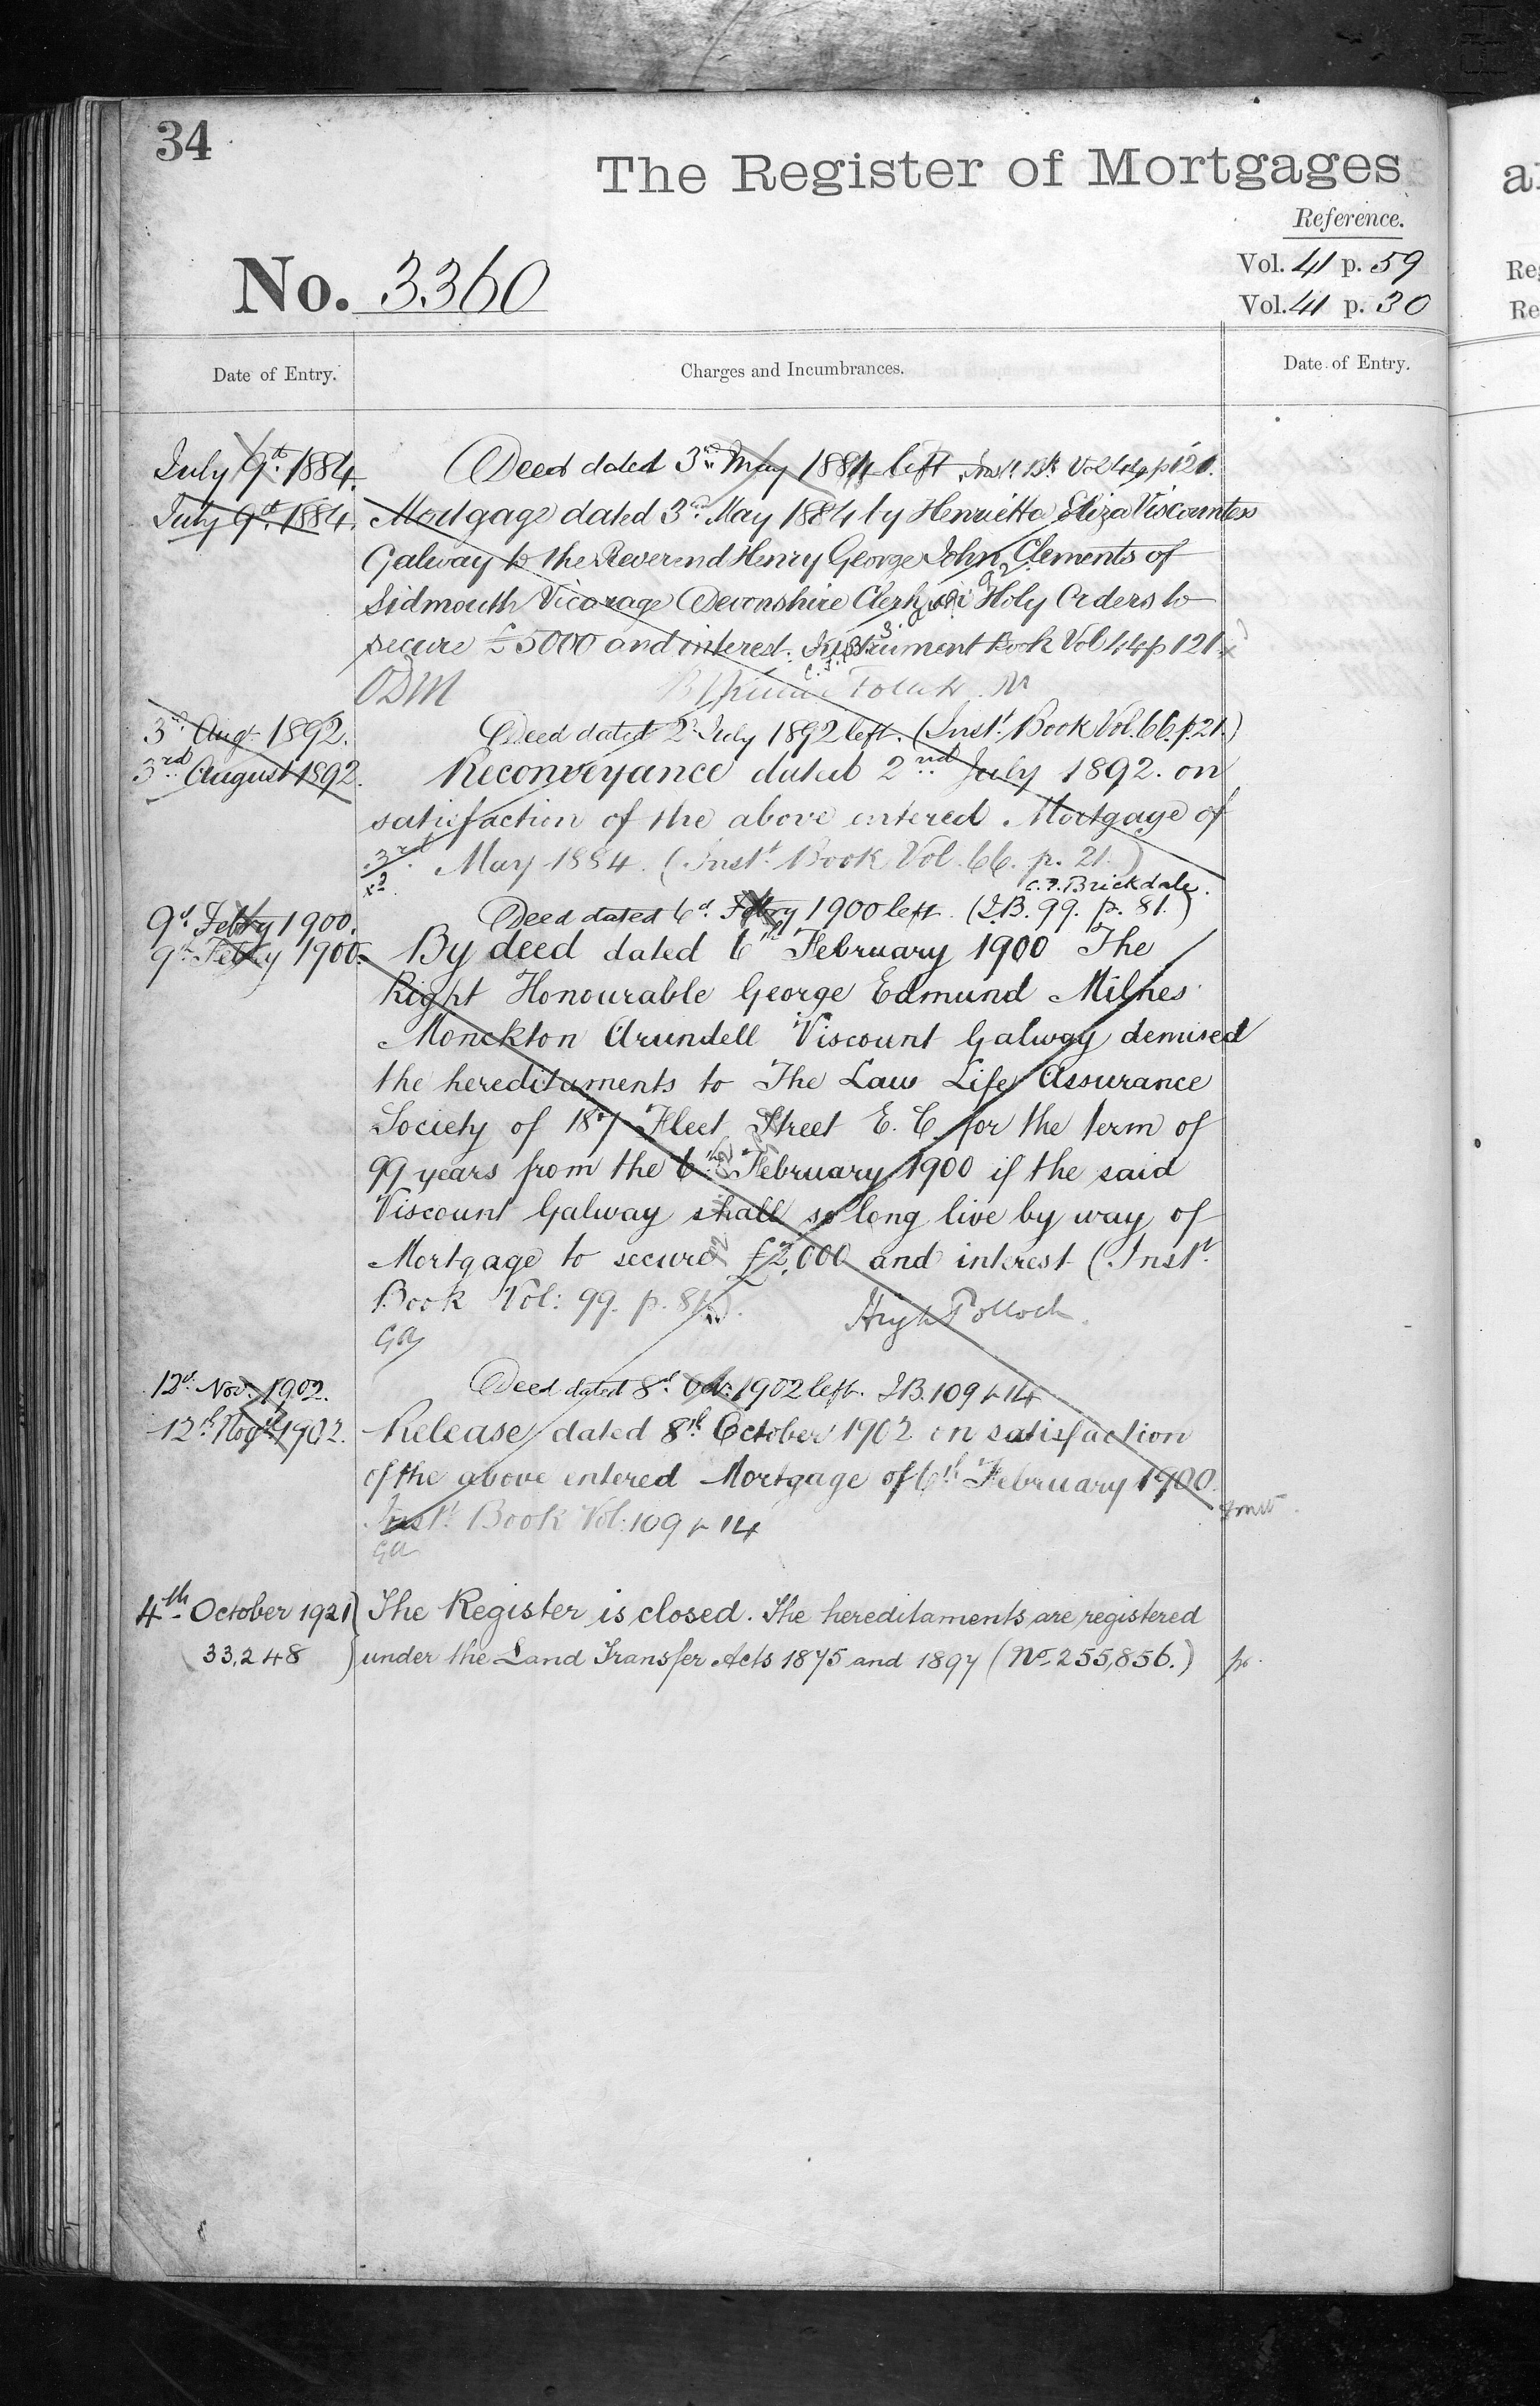 34
The Register of Mortgages
Reference.
No. 3360
Vol. 41 p. 59
Vol. 41 p. 30
Date of Entry.
Charges and Incumbrances.
Date of Entry.
July 9th 1884. Deed dated 3rd May 1884 left Inst. Bk Vol 44 p 121.
July 9th 1884. Mortgage dated 3rd May 1884 by Henrietta Eliza Viscountess
Galway to the Reverend Henry George John Clements of
Sidmouth Vicarage Devonshire Clerk in Holy Orders to
secure £5000 and interest. Instrument Book Vol 44 p 121.
ODM
3rd Aug. 1892. Deed dated 2d July 1892 left. (Inst. Book Vol. 66. p. 21.)
3rd August 1892. Reconveyance dated 2nd July 1892. on
satisfaction of the above entered Mortgage of
3rd May 1884. (Inst. Book Vol. 66. p. 21.)
C. F. Brickdale.
9th Febry 1900. Deed dated 6th Febry 1900 left. (I.B. 99. p. 81.)
9th Febry 1900. By deed dated 6th February 1900 The
Right Honourable George Edmund Milnes
Monckton Arundell Viscount Galway demised
the hereditaments to The Law Life Assurance
Society of 187 Fleet Street E. C. for the term of
99 years from the 6th February 1900 if the said
Viscount Galway shall so long live by way of
Mortgage to secure £2,000 and interest (Inst.
Book Vol: 99. p. 81.)
Hugh Pollock.
GA
12th Nov. 1902. Deed dated 8th Oct. 1902 left. I.B. 109 p 14
12th Novr. 1902. Release dated 8th October 1902 on satisfaction
of the above entered Mortgage of 6th February 1900.
Inst. Book Vol: 109 p 14
GA
4th October 1921 The Register is closed. The hereditaments are registered
33,248 under the Land Transfer Acts 1875 and 1897 (No. 255,856.)
a
Reg
Re